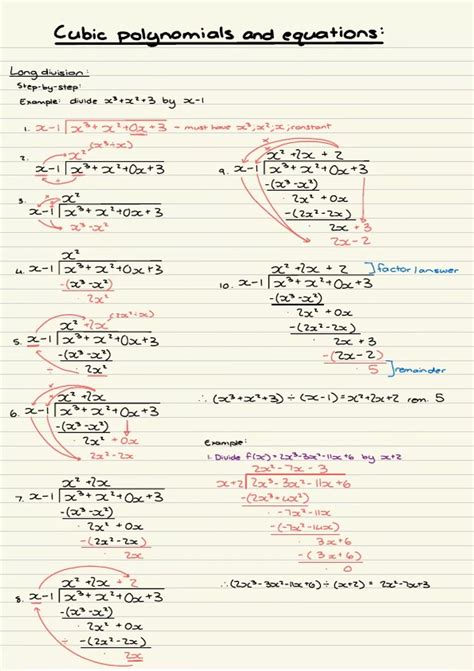 Cubic polynomials and equations:
Long division:
Step-by-step:
Example: divide x³+x²+3 by x-1
1. x-1 | x³+x²+0x+3 - must have x³, x², x, constant
2. (x³÷x)
x²
x-1 | x³+x²+0x+3
3. x²
x-1 | x³+x²+0x+3
x³-x²
4. x²
x-1 | x³+x²+0x+3
-(x³-x²)
2x²
5. x²+2x (2x²÷x)
x-1 | x³+x²+0x+3
-(x³-x²)
÷ 2x²
6. x²+2x
x-1 | x³+x²+0x+3
-(x³-x²)
2x²+0x
2x²-2x
7. x²+2x
x-1 | x³+x²+0x+3
-(x³-x²)
2x²+0x
-(2x²-2x)
2x
8. x²+2x+2
x-1 | x³+x²+0x+3
-(x³-x²)
2x²+0x
÷ -(2x²-2x)
2x
9. x²+2x+2
x-1 | x³+x²+0x+3
-(x³-x²)
2x²+0x
-(2x²-2x)
2x+3
2x-2
10. x²+2x+2 ] factor/answer
x-1 | x³+x²+0x+3
-(x³-x²)
2x²+0x
-(2x²-2x)
2x+3
-(2x-2)
5 ] remainder
∴ (x³+x²+3)÷(x-1)=x²+2x+2 rem. 5
Example:
1. Divide f(x)=2x³-3x²-11x+6 by x+2
2x²-7x+3
x+2 | 2x³-3x²-11x+6
-(2x³+4x²)
-7x²-11x
-(-7x²-14x)
3x+6
-(3x+6)
0
∴(2x³-3x²-11x+6)÷(x+2)=2x²-7x+3